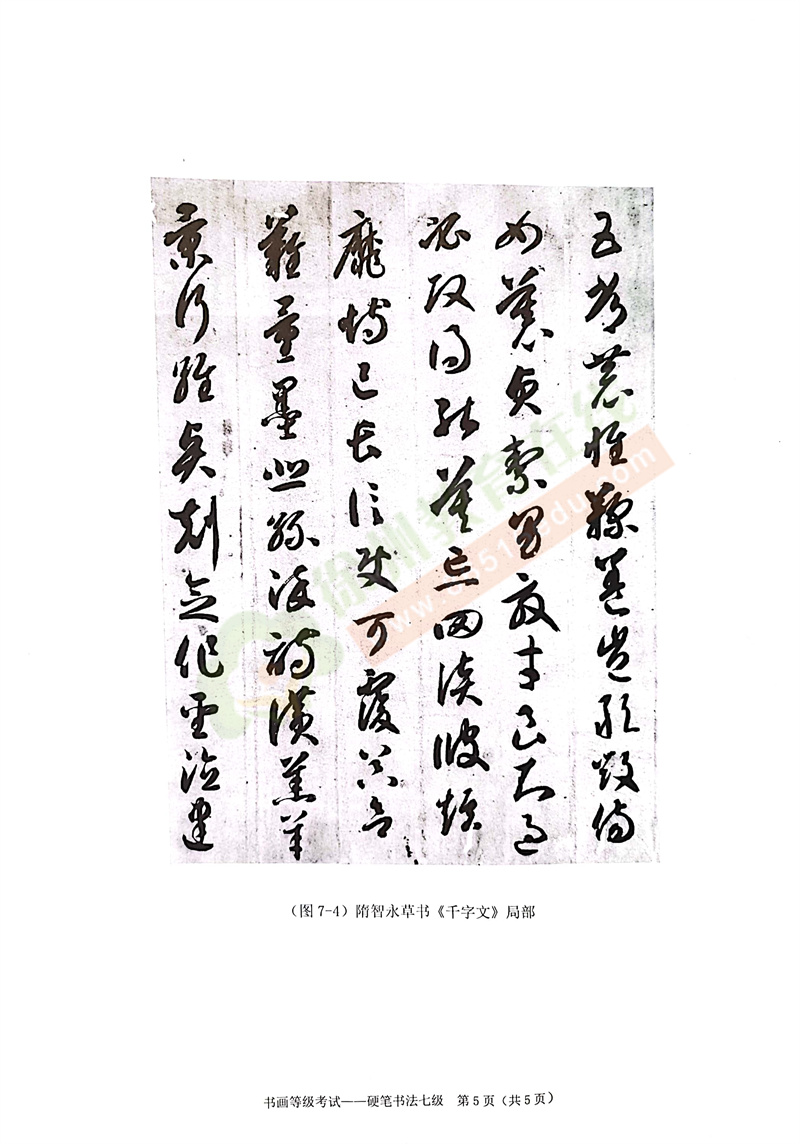 五常恭惟鞠養豈敢毀傷
女慕貞絜男效才良知過
必改得能莫忘罔談彼短
靡恃己長信使可覆器欲
難量墨悲絲染詩讚羔羊
景行維賢剋念作聖德建
徐州教育在线
（图7-4）隋智永草书《千字文》局部
书画等级考试——硬笔书法七级 第5页（共5页）